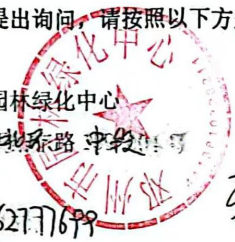 提出询问，请按照以下方
园林绿化中心
北环路 中段
62777699
邓州市园林绿化中心